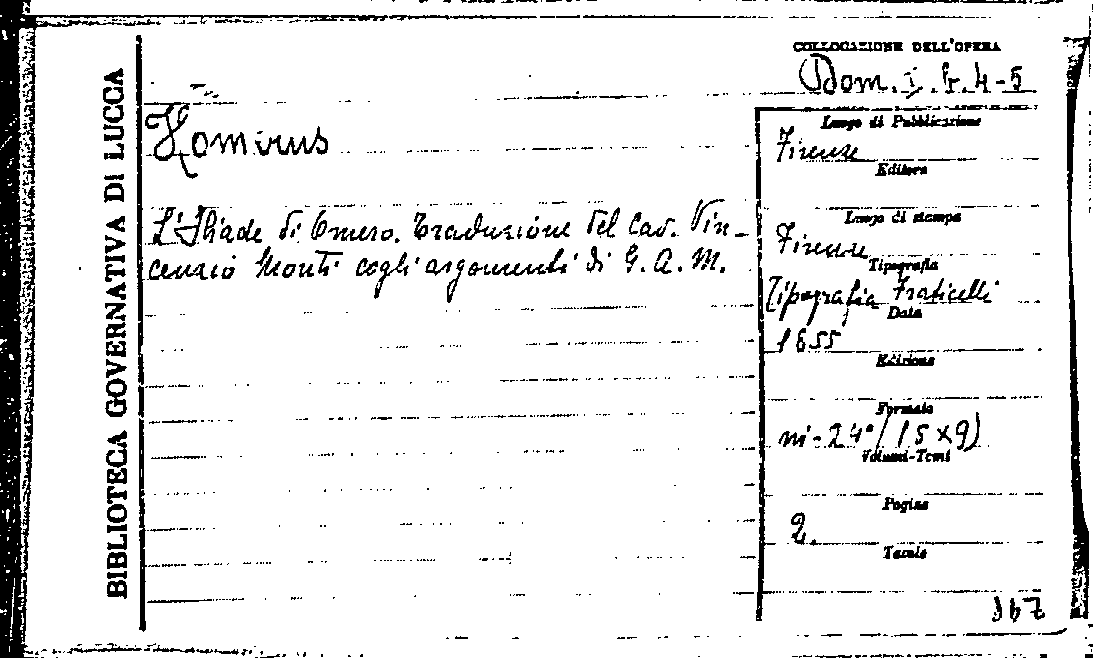 BIBLIOTECA GOVERNATIVA DI LUCCA
COLLOCAZIONE DELL'OPERA
Dom. I. b. 4-5
Homerus
L'Iliade di Omero. Traduzione del Cav. Vin-
cenzio Monti cogli argomenti di G. A. M.
Luogo di Pubblicazione
Firenze
Editore
Luogo di stampa
Firenze
Tipografia
Tipografia Fraticelli
Data
1855
Edizione
Formato
in-24°(15x9)
Volumi-Tomi
Pagine
2.
Tavole